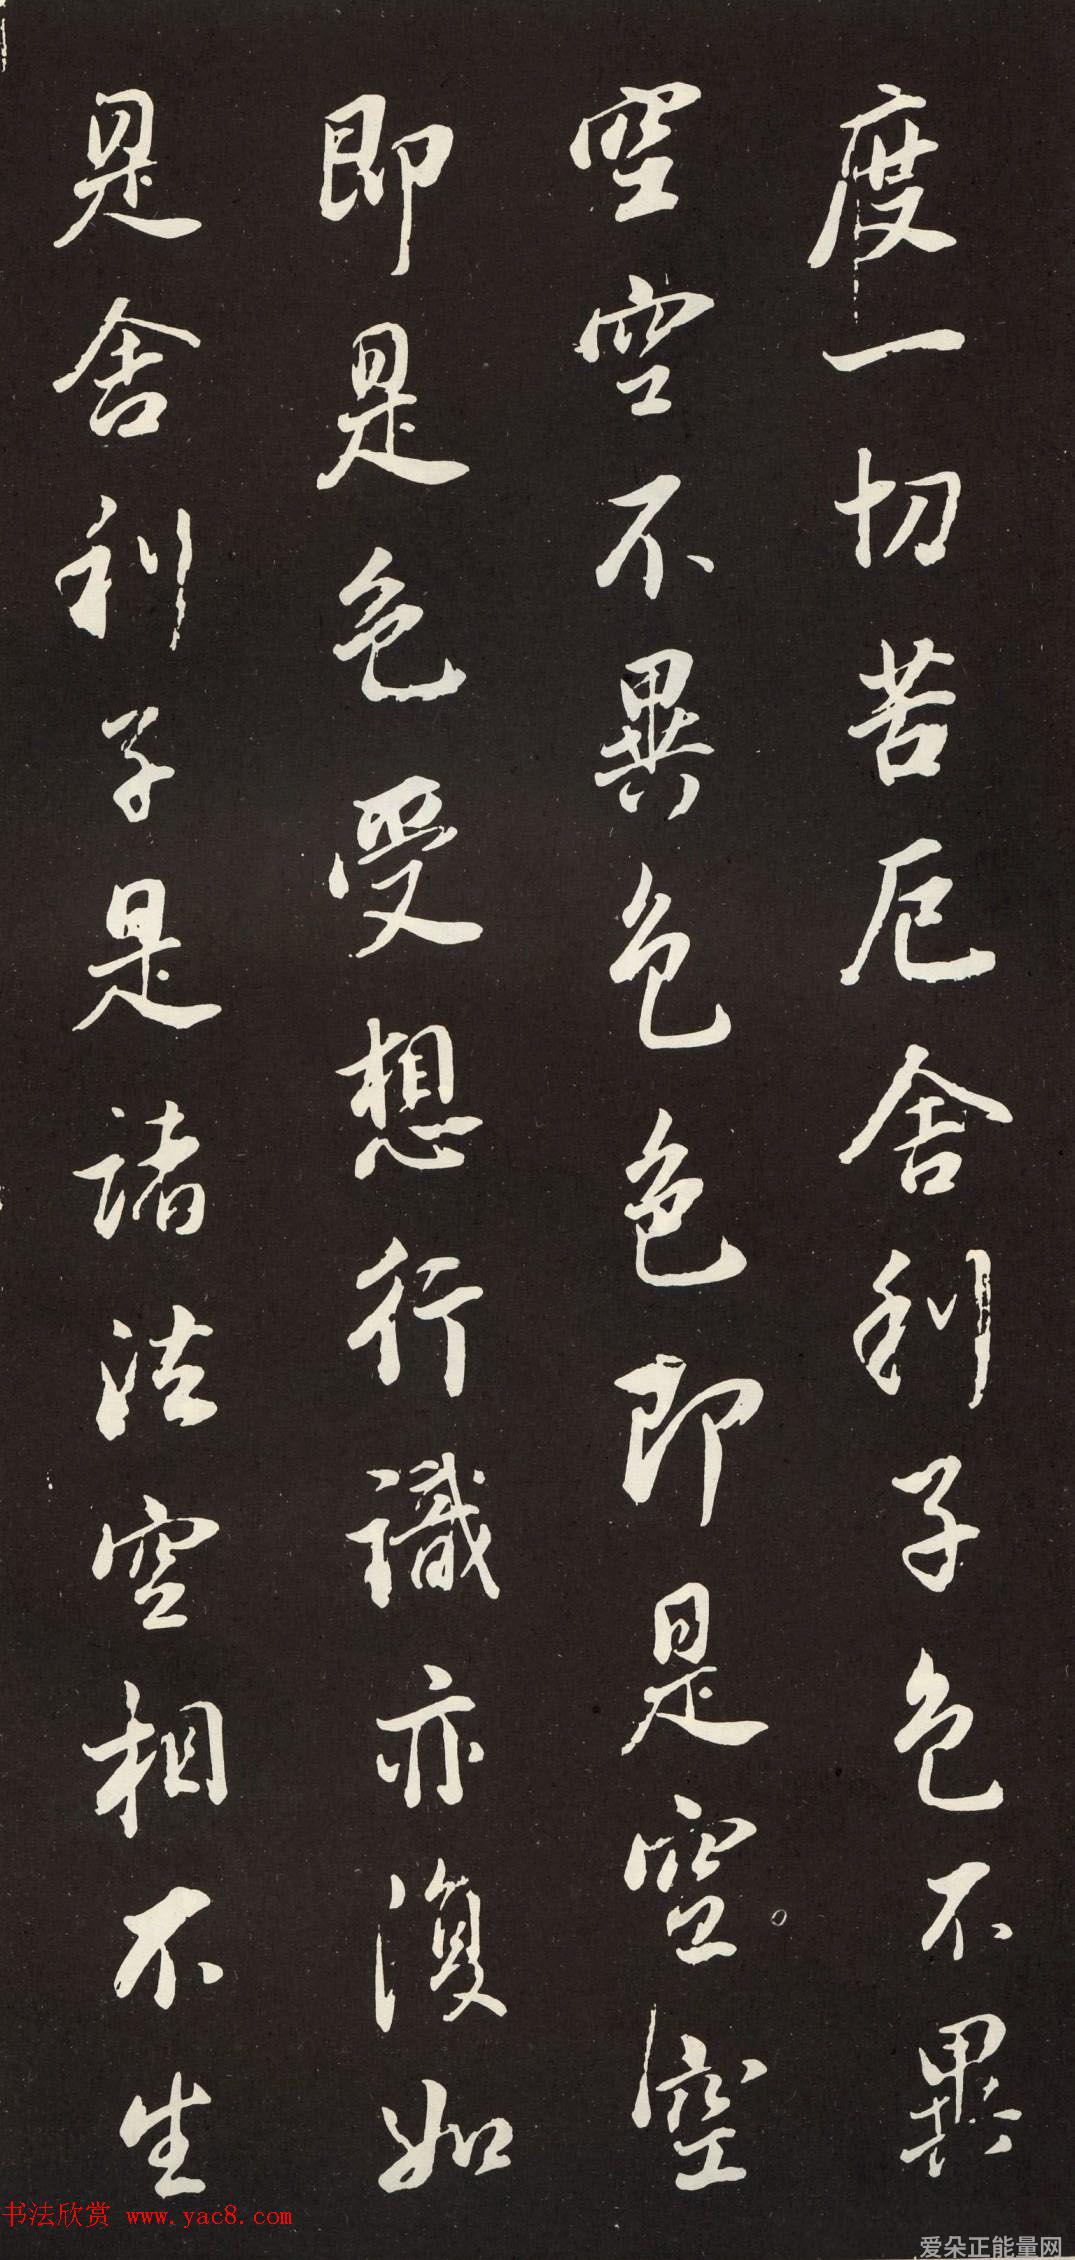 度一切苦厄舍利子色不異
空空不異色色即是空空
即是色受想行識亦復如
是舍利子是諸法空相不生
书法欣赏 www.yac8.com
爱朵正能量网